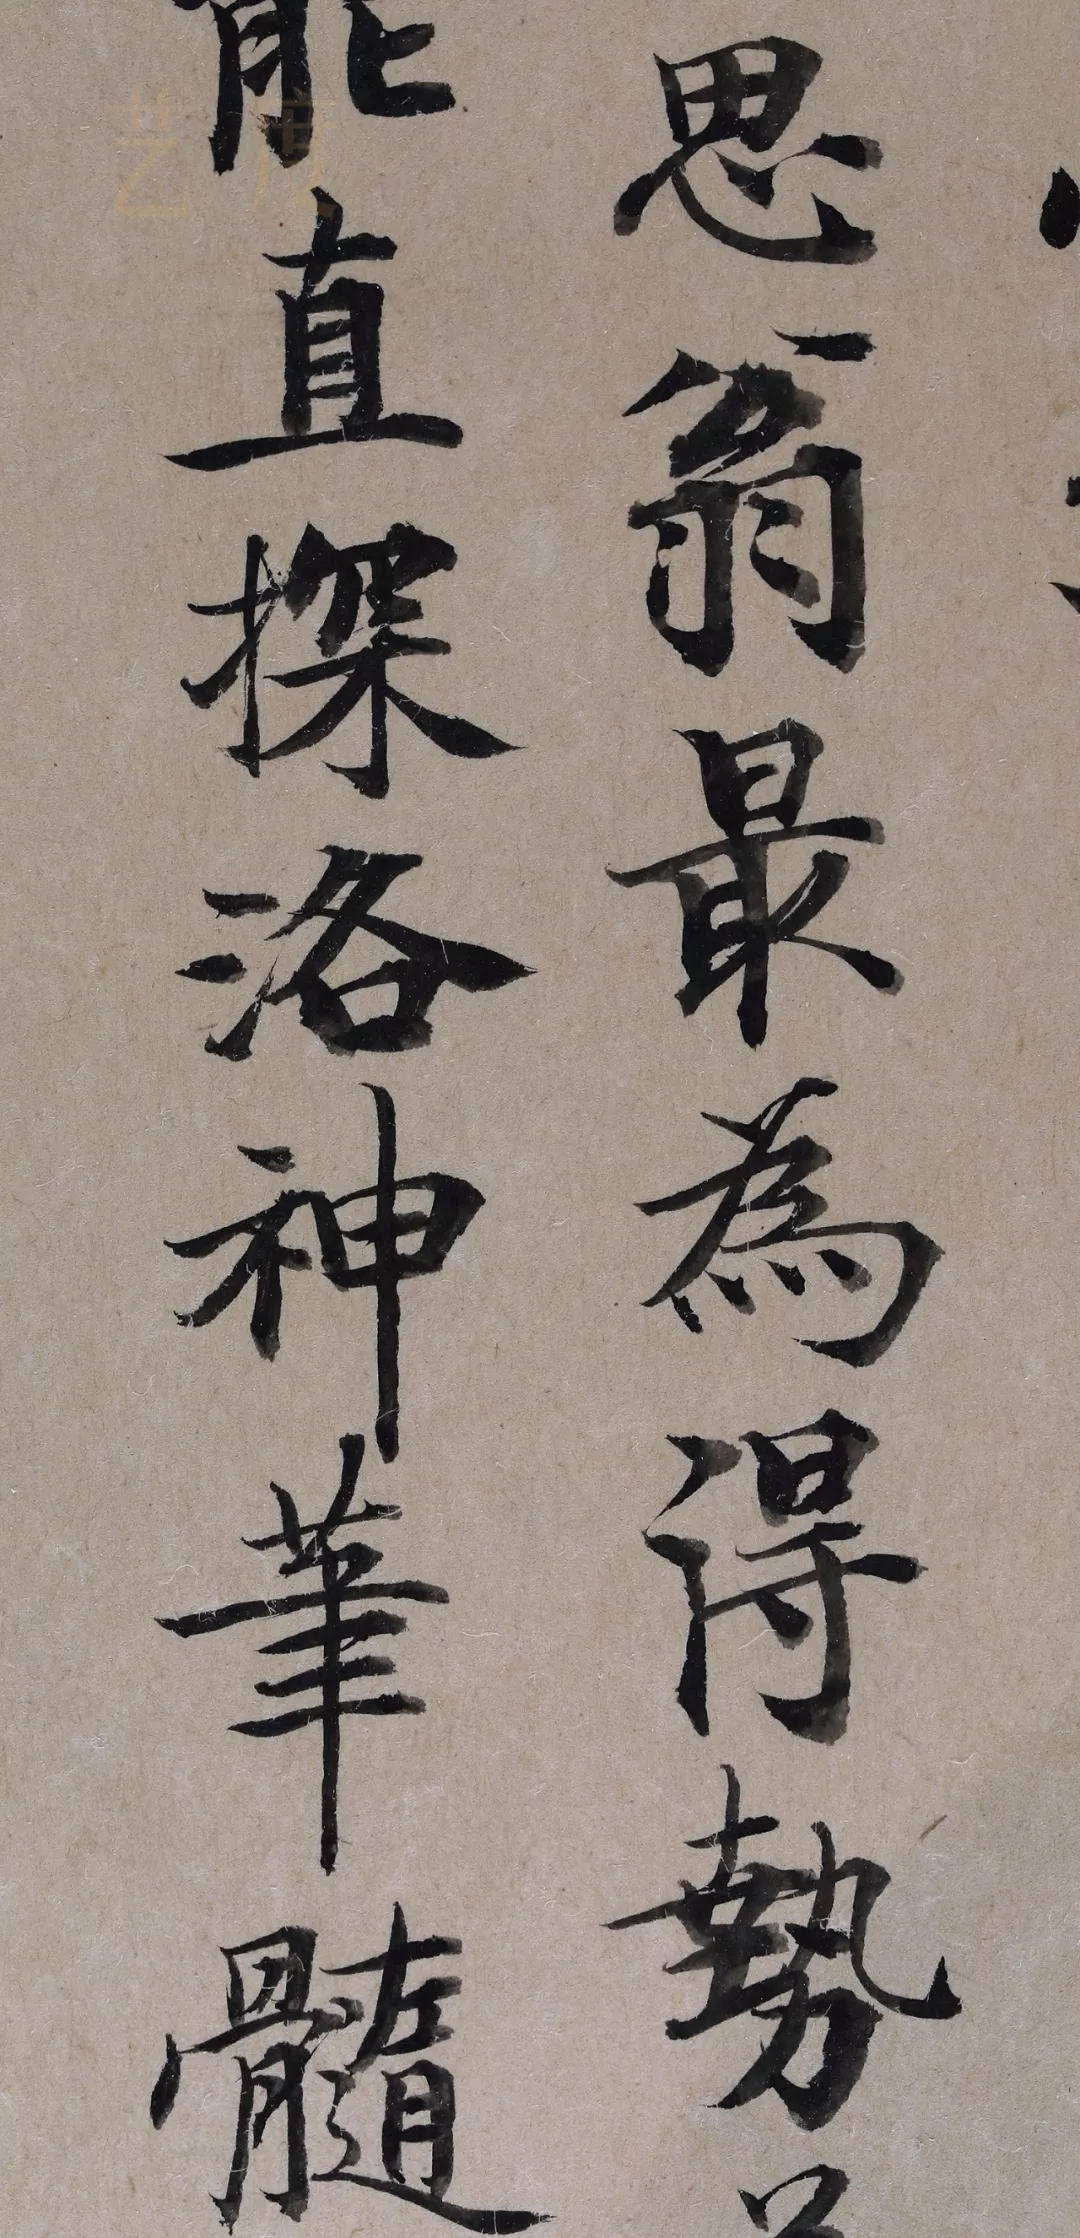 思翁最為得勢
能直探洛神筆髓
艺度